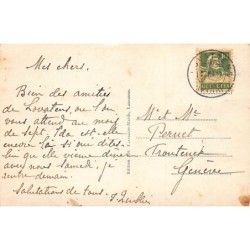 Mes chers.
Bien des amitiés
de Lovatens, où l'on
vous attend au mois
de sept. Ida est elle
encore là, si oui dites-
lui que elle vienne dîner
avec nous samedi, je
rentre demain.
Salutations de tous.
M. et Mme
Perret
Frontenex
Genève